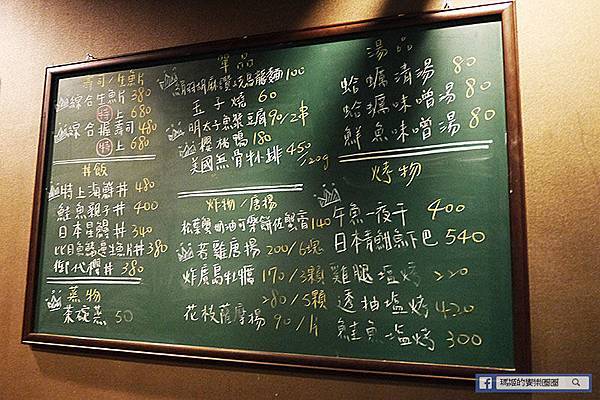 壽司/生魚片
綜合生魚片 380
特上 680
綜合握壽司 480
特上 680
丼飯
特上海鮮丼 480
鮭魚親子丼 400
日本星鰻丼 340
比目魚鰭邊生魚片丼 380
御代櫻丼 380
蒸物
茶碗蒸 50
單品
胡麻讚岐烏龍麵 100
玉子燒 60
明太子魚漿豆腐 90/2串
櫻桃鴨 180
美國無骨牛小排 450/120g
炸物/唐揚
松葉蟹奶油可樂餅佐蟹膏 140
若雞唐揚 200/6塊
炸廣島牡蠣 170/3顆
280/5顆
花枝薩摩揚 90/片
湯品
蛤蠣清湯 80
蛤蠣味噌湯 80
鮮魚味噌湯 80
烤物
午魚一夜干 400
日本青魽魚下巴 540
雞腿塩烤 220
透抽塩烤 420
鮭魚塩烤 300
瑪姬的變樂圈圈